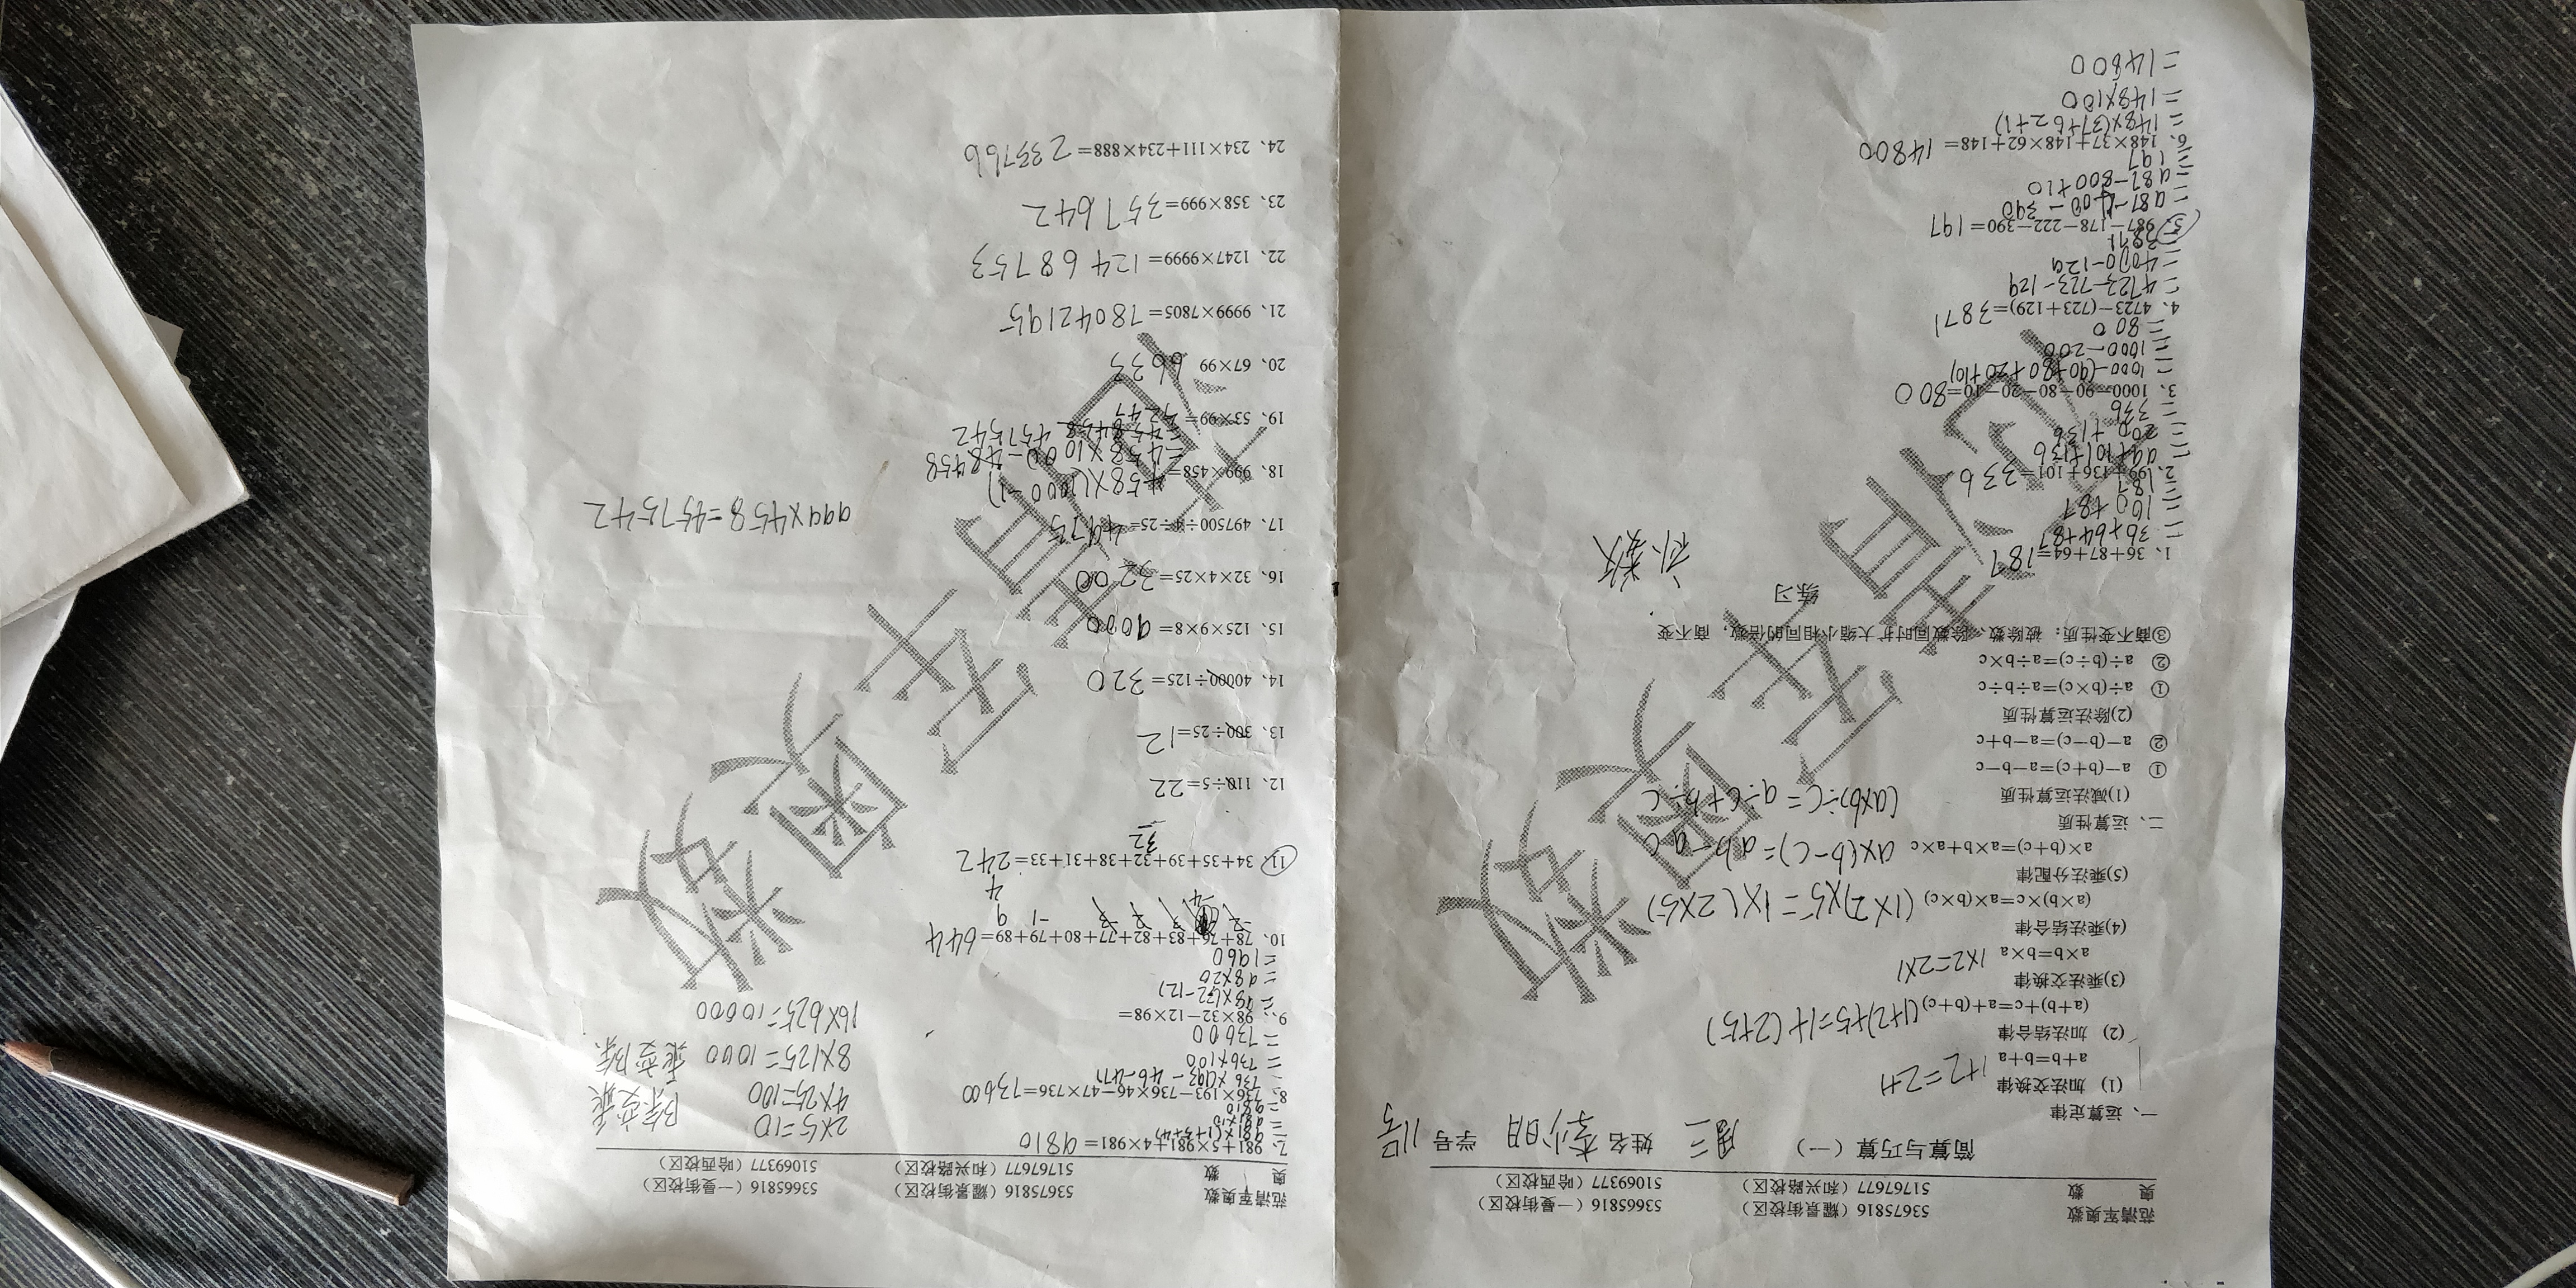 范清军奥数 53675816（耀景街校区） 53665816（一曼街校区）
奥 数 51767677（和兴路校区） 51069377（哈西校区）
简算与巧算（一） 周三 姓名 李少明 学号 11号
一、运算定律
(1) 加法交换律
a+b=b+a 1+2=2+1
(2) 加法结合律
(a+b)+c=a+(b+c) (1+2)+5=1+(2+5)
(3)乘法交换律
a×b=b×a 1×2=2×1
(4)乘法结合律
(a×b)×c=a×(b×c) (1×2)×5=1×(2×5)
(5)乘法分配律
a×(b+c)=a×b+a×c a×(b-c)=ab-ac
二、运算性质
(1)减法运算性质 (a×b)÷c=a÷c+b÷c
① a-(b+c)=a-b-c
② a-(b-c)=a-b+c
(2)除法运算性质
① a÷(b×c)=a÷b÷c
② a÷(b÷c)=a÷b×c
③商不变性质：被除数、除数同时扩大缩小相同的倍数，商不变
练习
补数
1、36+87+64=187
=36+64+87
=100+87
=187
2、99+136+101=336
=99+101+136
=200+136
=336
3、1000-90-80-20-10=800
=1000-(90+80+20+10)
=1000-200
=800
4、4723-(723+129)=3871
=4723-723-129
=4000-129
=3871
5、987-178-222-390=197
=987-400-390
=987-800+10
=197
6、148×37+148×62+148=14800
=148×(37+62+1)
=148×100
=14800
范清军奥数 53675816（耀景街校区） 53665816（一曼街校区）
奥 数 51767677（和兴路校区） 51069377（哈西校区）
7、981+5×981+4×981=9810
=981×(1+5+4)
=981×10
=9810
2×5=10
4×25=100 除变乘
8×125=1000 乘变除
16×625=10000
8、736×193-736×46-47×736=73600
736×(193-46-47)
=736×100
=73600
9、98×32-12×98=
=98×(32-12)
=98×20
=1960
10、78+76+83+82+77+80+79+89=644
11、34+35+39+32+38+31+33=242
32
12、110÷5=22
13、300÷25=12
14、40000÷125=320
15、125×9×8=9000
16、32×4×25=3200
17、497500÷4÷25=4975
18、999×458=
458×(1000-1)
=458×1000-458
=457542
999×458=457542
19、53×99=5247
20、67×99 6633
21、9999×7805=78042195
22、1247×9999=12468753
23、358×999=357642
24、234×111+234×888=233766